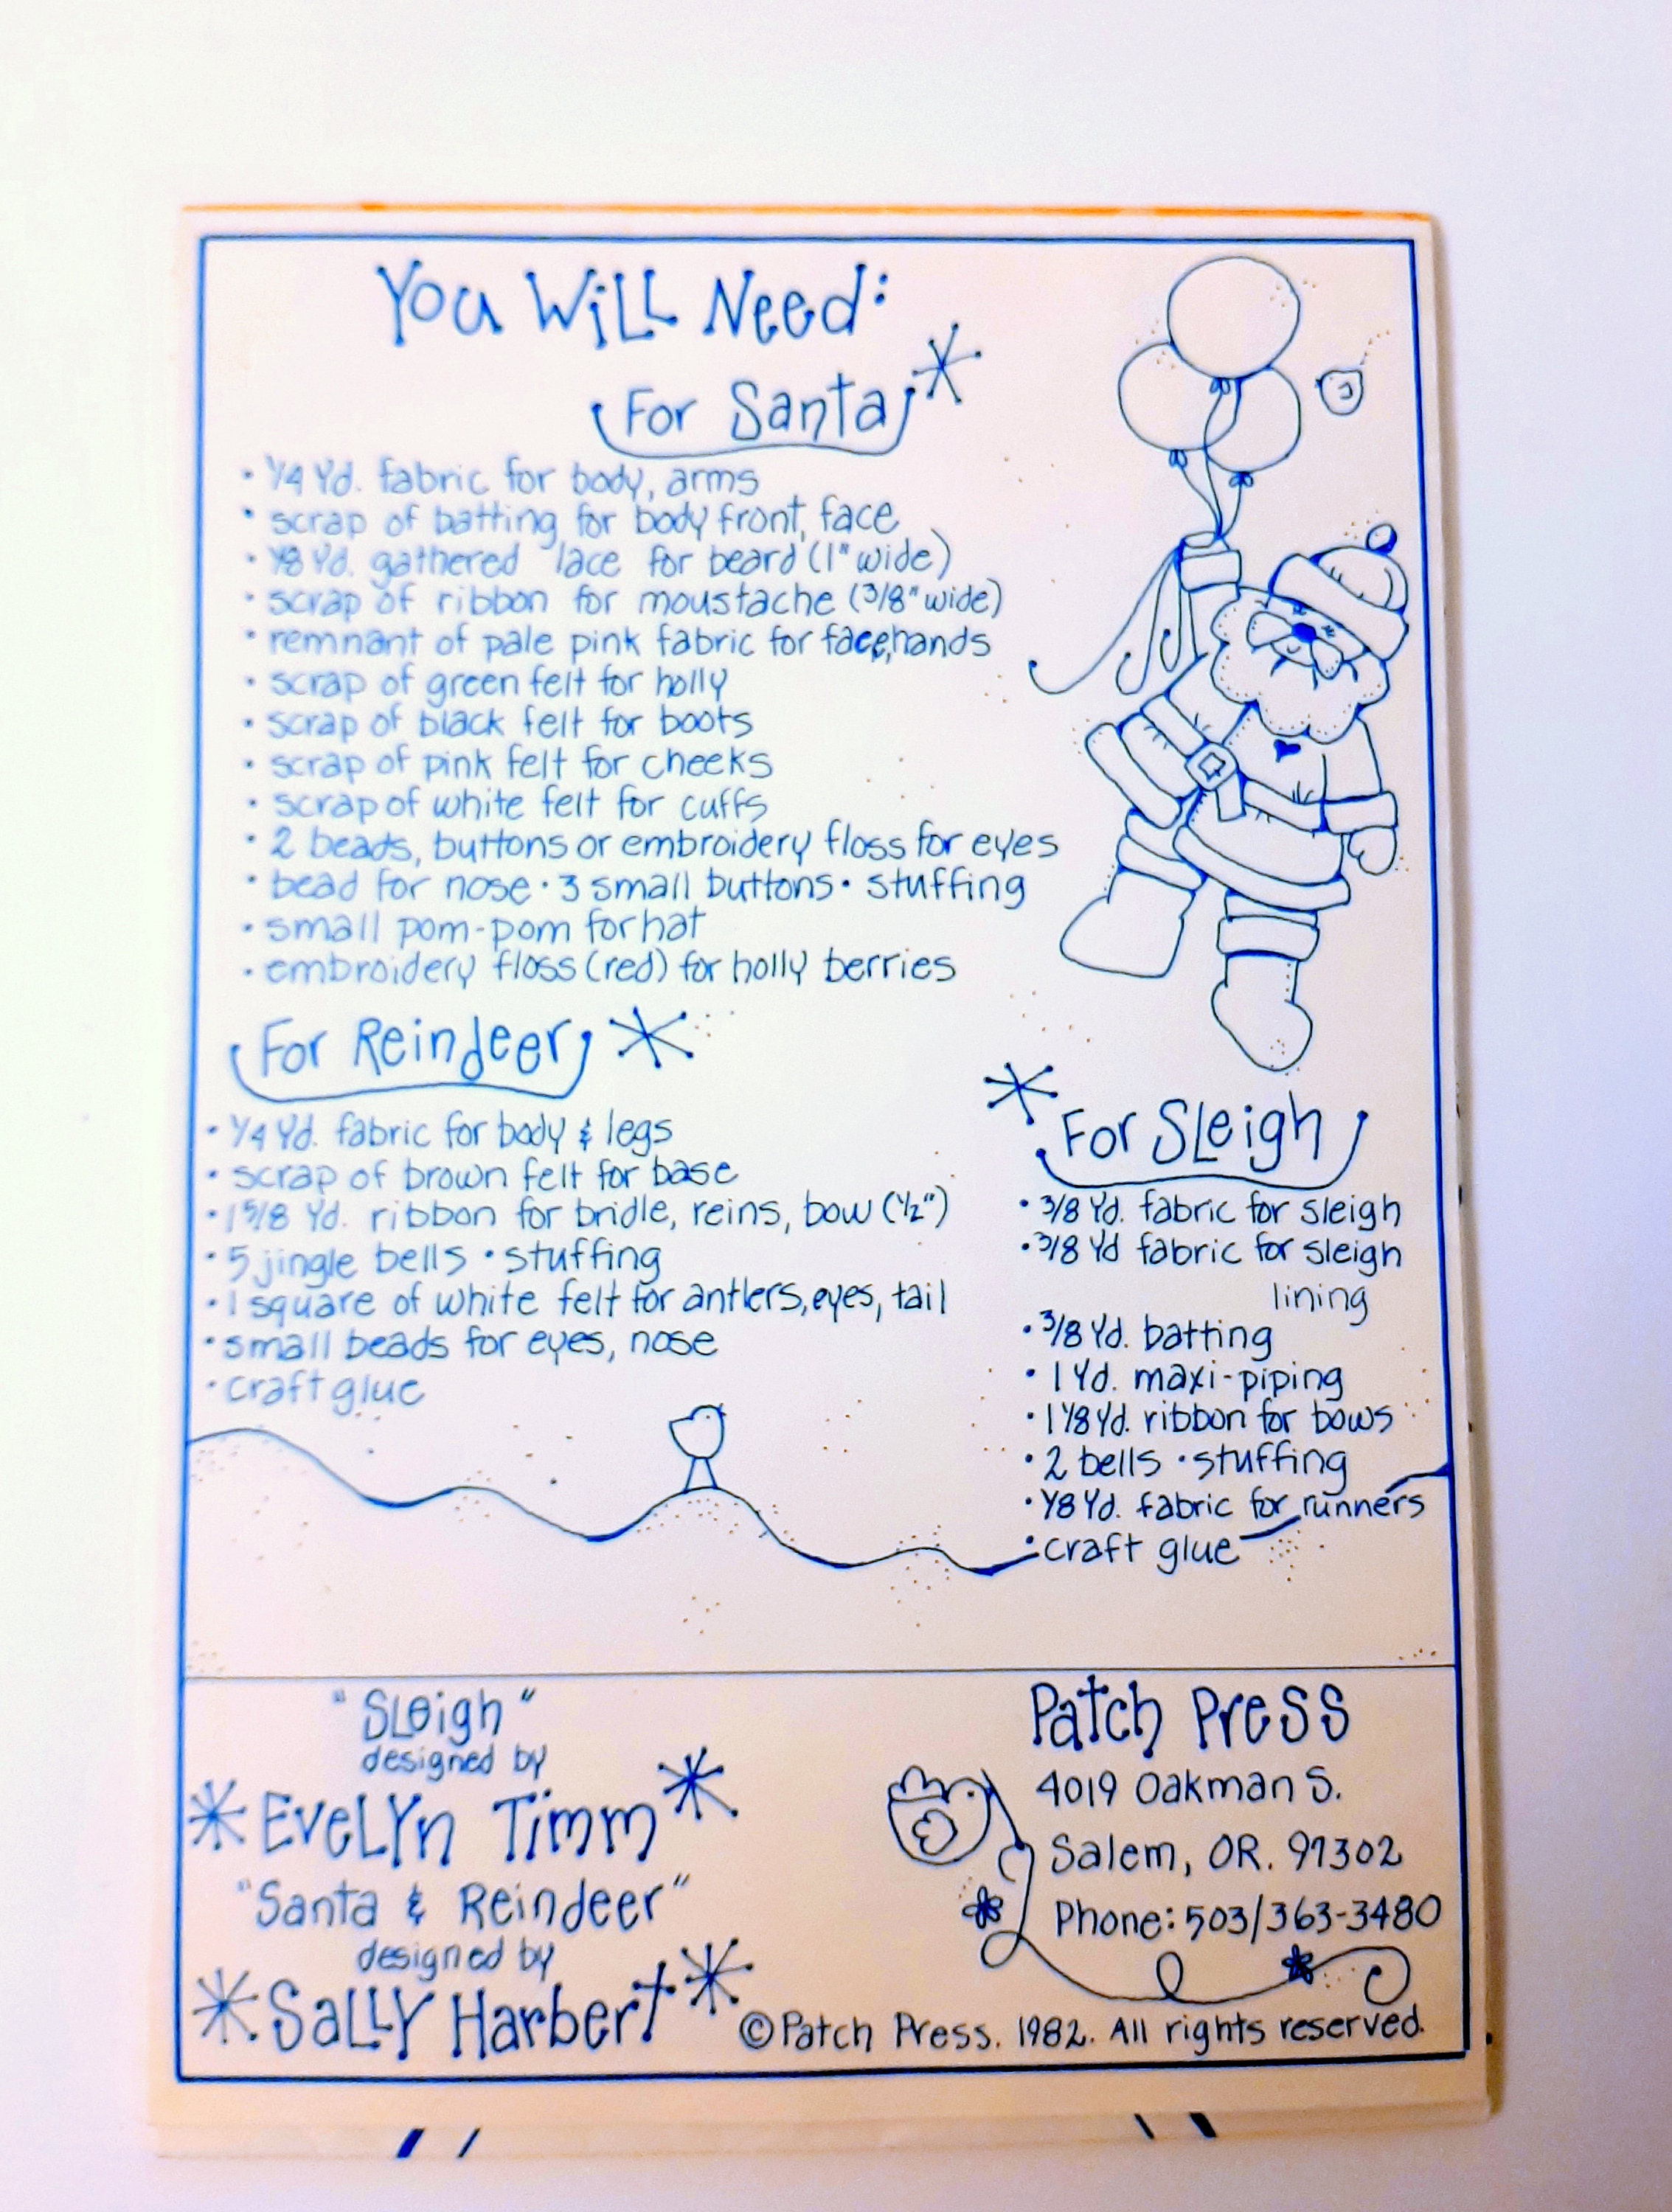 You Will Need:
For Santa
• 1/4 Yd. fabric for body, arms
• scrap of batting for body front, face
• 1/8 Yd. gathered lace for beard (1" wide)
• scrap of ribbon for moustache (3/8" wide)
• remnant of pale pink fabric for face, hands
• scrap of green felt for holly
• scrap of black felt for boots
• scrap of pink felt for cheeks
• scrap of white felt for cuffs
• 2 beads, buttons or embroidery floss for eyes
• bead for nose • 3 small buttons • stuffing
• small pom-pom for hat
• embroidery floss (red) for holly berries
For Reindeer
• 1/4 Yd. fabric for body & legs
• scrap of brown felt for base
• 1 5/8 Yd. ribbon for bridle, reins, bow (1/2")
• 5 jingle bells • stuffing
• 1 square of white felt for antlers, eyes, tail
• small beads for eyes, nose
• craft glue
For Sleigh
• 3/8 Yd. fabric for sleigh
• 3/8 Yd fabric for sleigh
lining
• 3/8 Yd. batting
• 1 Yd. maxi-piping
• 1 1/8 Yd. ribbon for bows
• 2 bells • stuffing
• 1/8 Yd. fabric for runners
• craft glue
"Sleigh"
designed by
Evelyn Timm
"Santa & Reindeer"
designed by
Sally Harbert
Patch Press
4019 Oakman S.
Salem, OR. 97302
Phone: 503/363-3480
© Patch Press. 1982. All rights reserved.